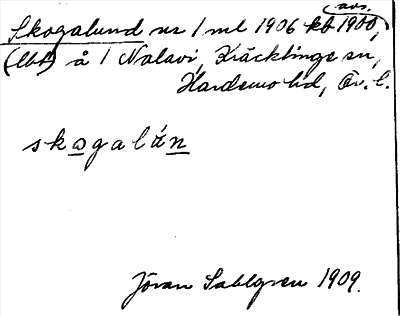 avs.
Skogalund ns 1 ml 1906 kb 1900,
(lht) å 1 Nalavi, Kräcklinge sn,
Hardemo hd, Ör. l.
skogalún
Jöran Sahlgren 1909.